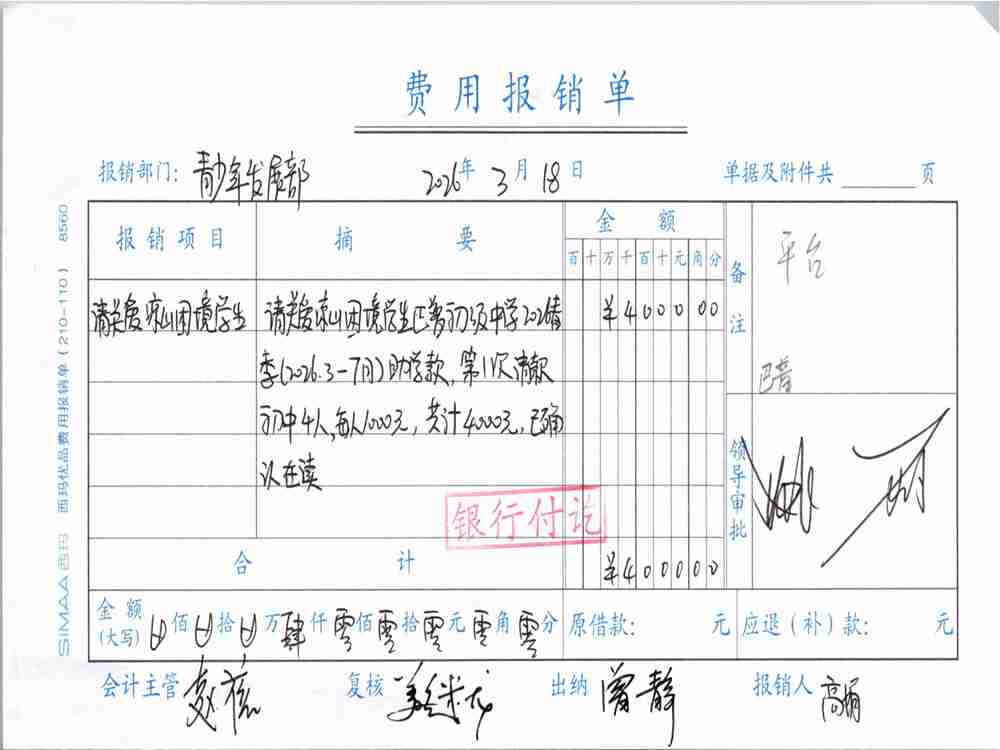 费用报销单
报销部门: 青少年发展部 2026年 3月 18日 单据及附件共 页
报销项目 摘要 金额 备注 平台
百十万千百十元角分
请关爱凉山困境学生 请关爱凉山困境学生巴普初级中学2026春 ¥4000 00
季(2026.3-7月)助学款,第1次请款
初中4人,每人1000元,共计4000元,已确
认在读
巴普
领导审批
银行付讫
合计 ¥400000
金额(大写) 佰 拾 万肆仟零佰零拾零元零角零分 原借款: 元 应退(补)款: 元
会计主管 复核 出纳 曾静 报销人 高娟
SIMAA 西玛 西玛优品费用报销单(210-110) 8560